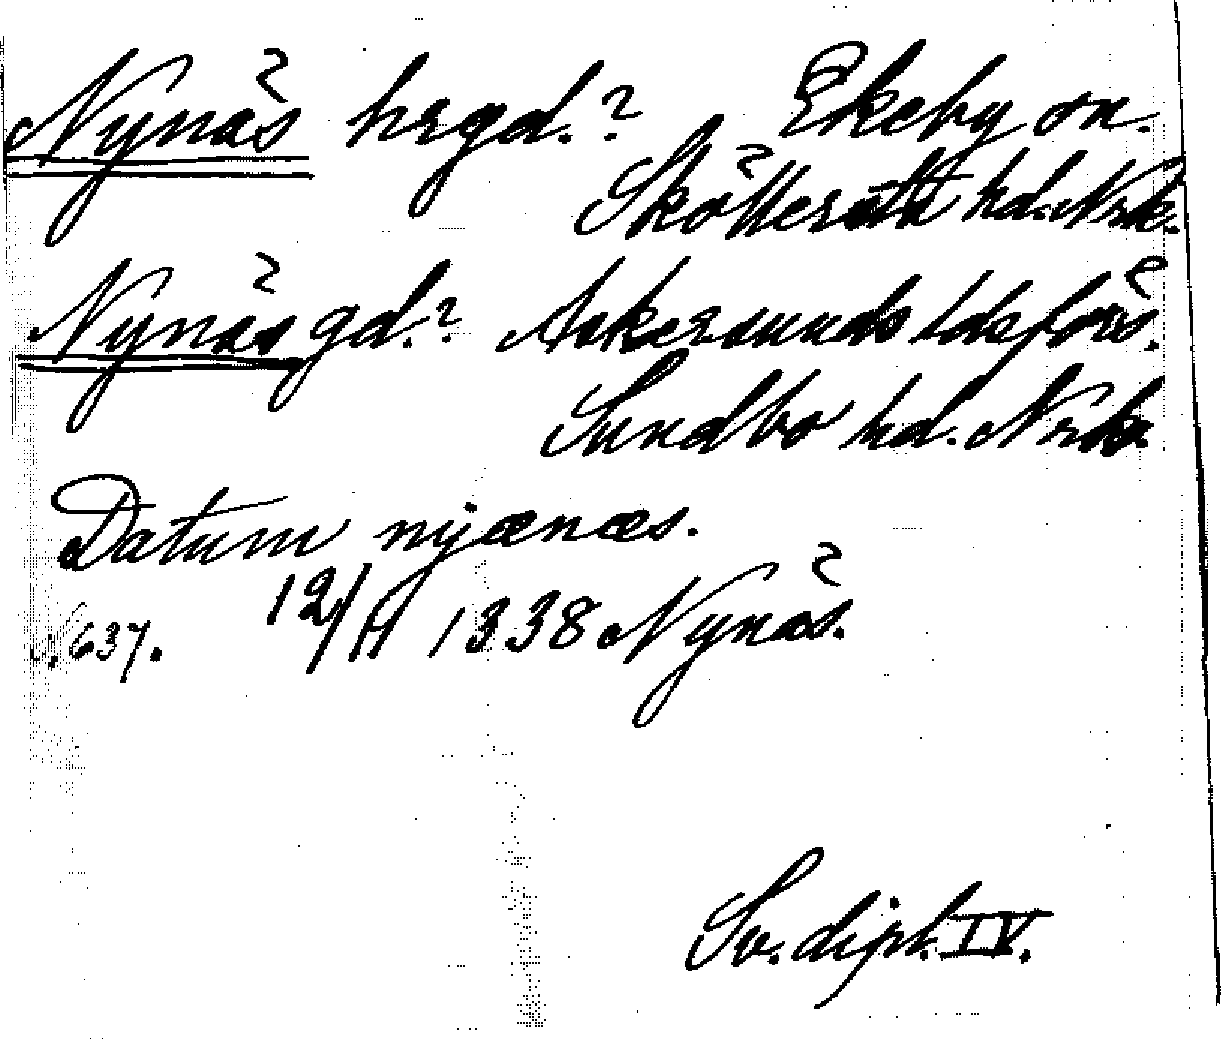 Nynäs hrgd.? Ekeby sn.
Sköllersta hd. Nrk.
Nynäs gd.? Askersunds ldsförs.
Sundbo hd. Nrk.
Datum nyænæs.
s. 637. 12/11 1338 Nynäs.
Sv. dipl. IV.